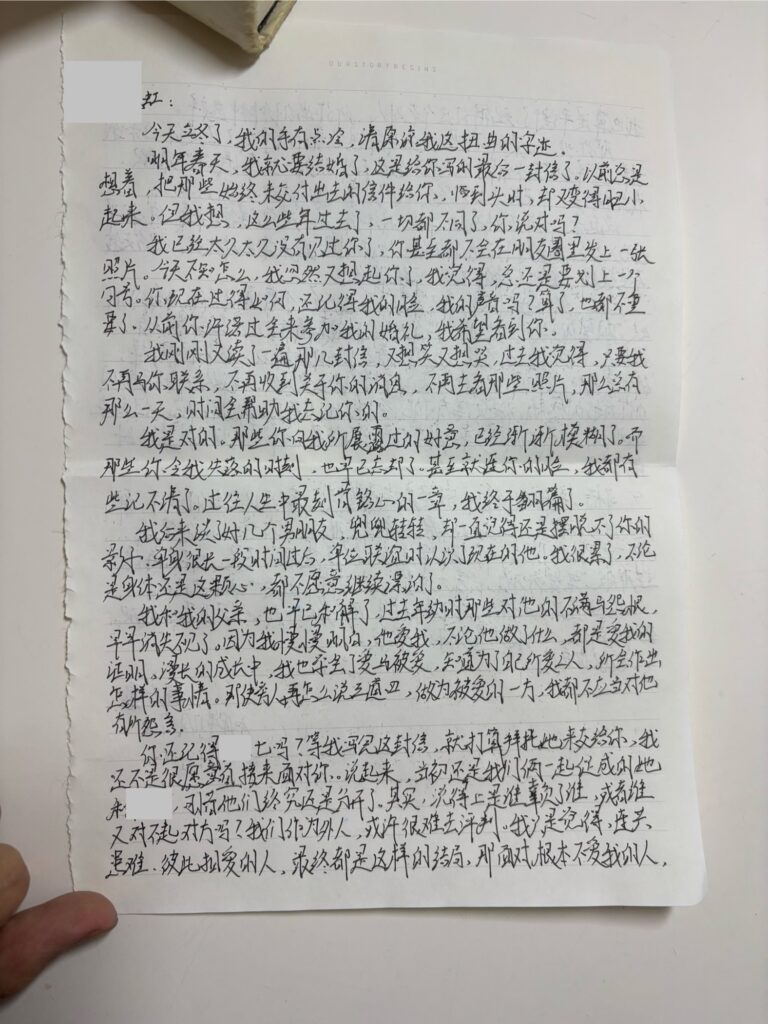 OURSTORYBEGINS
红：
今天立冬了，我的手有点冷，请原谅我这扭曲的字迹．
明年春天，我就要结婚了，这是给你写的最后一封信了。以前总是
想着，把那些始终未交付出去的信件给你，临到头时，却又变得胆小
起来。但我想，这么些年过去了，一切都不同了，你说对吗？
我已经太久太久没有见过你了，你甚至都不会在朋友圈里发上一张
照片。今天不知怎么，我忽然又想起你了，我觉得，总还是要划上一个
句号。你现在过得如何，还记得我的脸，我的声音吗？算了，也都不重
要了．从前你许诺过会来参加我的婚礼，我希望看到你．
我刚刚又读了一遍那几封信，又想哭又想笑，过去我觉得，只要我
不再与你联系，不再收到关于你的消息，不再去看那些照片，那么总有
那么一天，时间会帮助我忘记你的。
我是对的。那些你向我所展露过的好意，已经渐渐模糊了。而
那些你令我失落的时刻，也早已忘却了。甚至就连你的脸，我都有
些记不清了。过往人生中最刻骨铭心的一章，我终于翻篇了。
我后来谈了好几个男朋友，兜兜转转，却一直觉得还是摆脱不了你的
影子．单身很长一段时间过后，单位联谊时认识了现在的他。我很累了，不论
是身体还是这颗心，都不愿意继续漂泊了。
我和我的父亲，也早已和解了，过去年幼时那些对他的不满与怨恨，
早早消失不见了。因为我慢慢明白，他爱我，不论他做了什么，都是爱我的
证明。漫长的成长中，我也学会了爱与被爱，知道为了自己所爱之人，所会作出
怎样的事情。即使旁人再怎么说三道四，做为被爱的一方，我都不应当对他
有所怨言．
你还记得 七吗？等我写完这封信，就打算拜托她来交给你，我
还不是很愿意直接来面对你。说起来，当初还是我们俩一起促成的她
和 ，可惜他们终究还是分开了。其实，说得上是谁辜负了谁，或者谁
又对不起对方吗？我们作为外人，或许很难去评判．我只是觉得，连共
患难．彼此相爱的人，最终都是这样的结局，那面对根本不爱我的人，